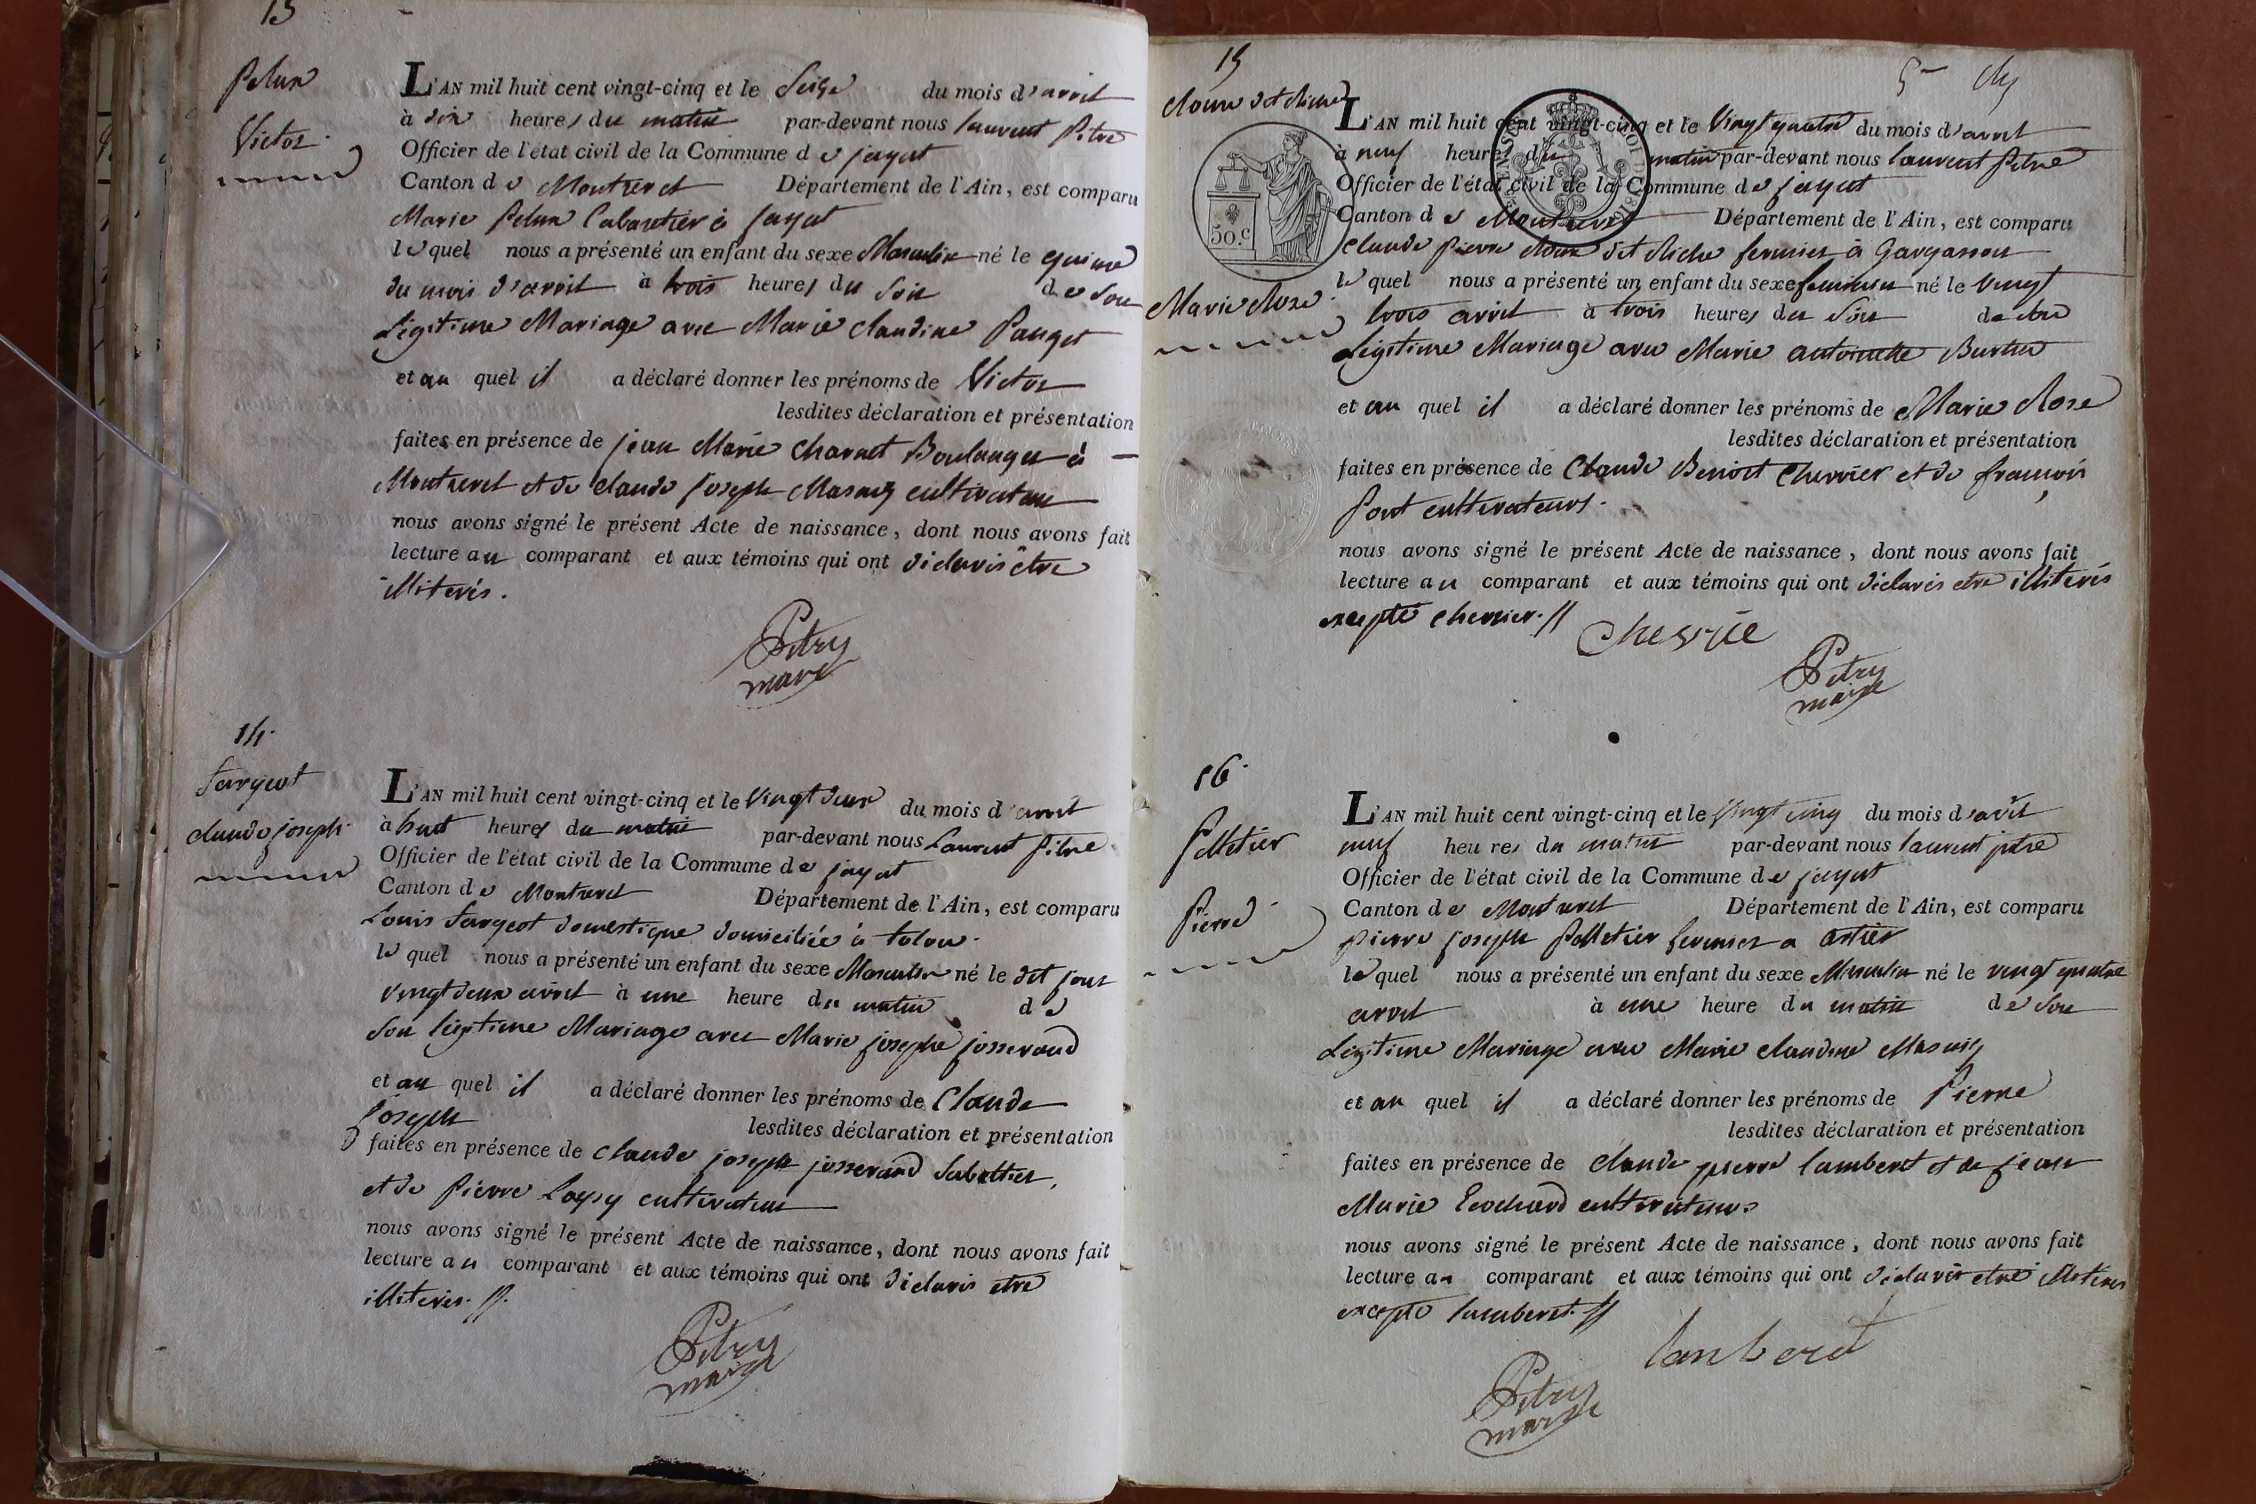 13
Pelux
Victor.
L'AN mil huit cent vingt-cinq et le Seize du mois d'avril
à dix heures du matin par-devant nous laurent Pitre
Officier de l'état civil de la Commune de jayat
Canton de Montrevel Département de l'Ain, est comparu
Marie Pelux Cabaretier à jayat
lequel nous a présenté un enfant du sexe Masculin né le quinze
du mois d'avril à trois heures du Soir de Son
Légitime Mariage avec Marie Claudine Panget
et au quel il a déclaré donner les prénoms de Victor
lesdites déclaration et présentation
faites en présence de jean Marie Charnet Boulanger à
Montrevel et de claude joseph Masuiy cultivateur
nous avons signé le présent Acte de naissance, dont nous avons fait
lecture au comparant et aux témoins qui ont déclarés être
illiterés.
Pitre
maire
14.
fargeot
claude joseph.
L'AN mil huit cent vingt-cinq et le vingt deux du mois d'avril
à huit heures du matin par-devant nous Laurent Pitre
Officier de l'état civil de la Commune de jayat
Canton de Montrevel Département de l'Ain, est comparu
Louis fargeot domestique domiciliée à
lequel nous a présenté un enfant du sexe Masculin né le dit jour
vingt deux avril à une heure du matin de
Son légitime Mariage avec Marie josephe josserand
et au quel il a déclaré donner les prénoms de Claude
joseph
lesdites déclaration et présentation
faites en présence de claude joseph josserand Sabottier,
et de Pierre Loysy cultivateur
nous avons signé le présent Acte de naissance, dont nous avons fait
lecture au comparant et aux témoins qui ont déclarés etre
illiterés.
Pitre
maire
15
5
Roux dit Riche
Marie Rose.
50.c
L'AN mil huit cent vingt-cinq et le vingt quatre du mois d'avril
à neuf heures du matin par-devant nous laurent Pitre
Officier de l'état civil de la Commune de jayat
Canton de Montrevel Département de l'Ain, est comparu
claude pierre Roux dit Riche fermier à Gargasson
lequel nous a présenté un enfant du sexe feminin né le vingt
trois avril à trois heures du Soir de son
Légitime Mariage avec Marie antoinette
et au quel il a déclaré donner les prénoms de Marie Rose
lesdites déclaration et présentation
faites en présence de Claude Benoit Chervier et de françois
Pont cultivateurs.
nous avons signé le présent Acte de naissance, dont nous avons fait
lecture au comparant et aux témoins qui ont déclarés etre illiterés
excepté chervier.
Pitre
maire
16.
Pelletier
Pierre
L'AN mil huit cent vingt-cinq et le vingt cinq du mois d'avril
neuf heures du matin par-devant nous laurent pitre
Officier de l'état civil de la Commune de jayat
Canton de Montrevel Département de l'Ain, est comparu
pierre joseph Pelletier fermier a
lequel nous a présenté un enfant du sexe Masculin né le vingt quatre
avril à une heure du matin de Son
Légitime Mariage avec Marie claudine Masuiy
et au quel il a déclaré donner les prénoms de Pierre
lesdites déclaration et présentation
faites en présence de claude pierre lamberet et de jean
Marie Ecochard cultivateurs
nous avons signé le présent Acte de naissance, dont nous avons fait
lecture au comparant et aux témoins qui ont déclarés etre illiterés
excepté lamberet.
lamberet
Pitre
maire